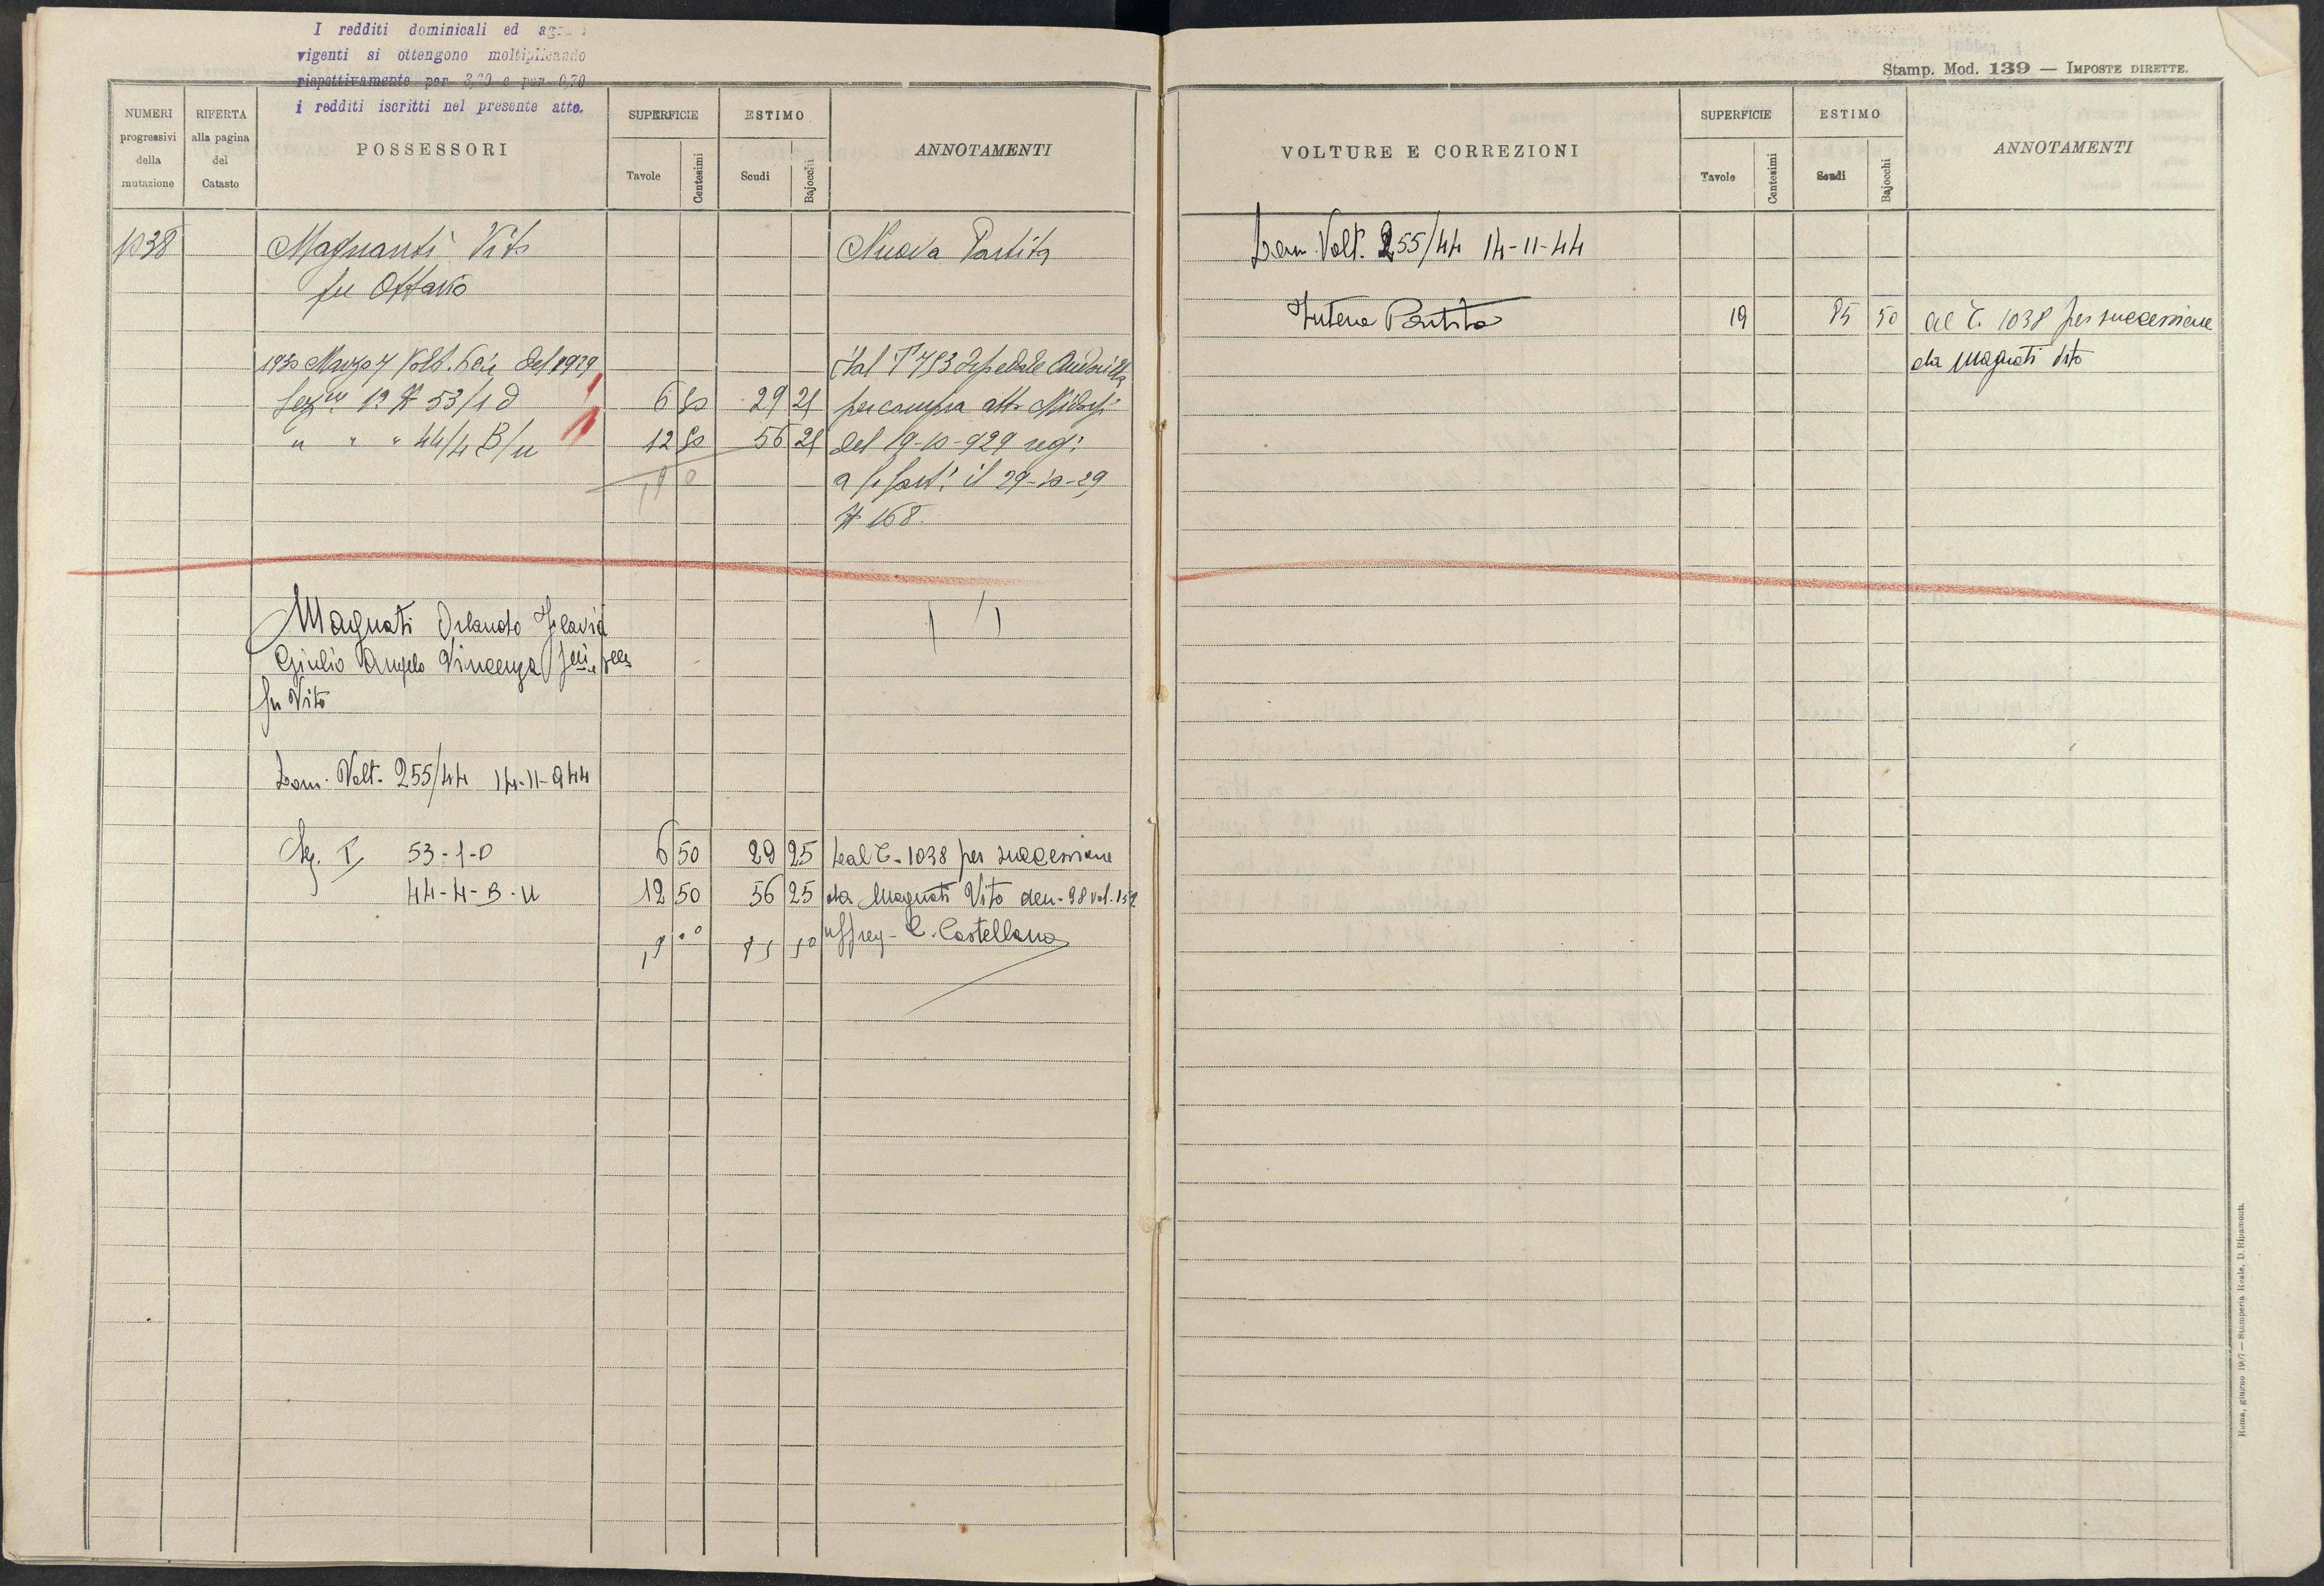 I redditi dominicali ed
vigenti si ottengono moltiplicando
rispettivamente per 3,20 e per 0,70
i redditi iscritti nel presente atto.
NUMERI progressivi della mutazione
RIFERTA alla pagina del Catasto
POSSESSORI
SUPERFICIE
Tavole
Centesimi
ESTIMO
Scudi
Bajocchi
ANNOTAMENTI
1038 Magnanti Vito Nuova Partita
fu Ottavio
1930 Marzo 7 Volt. del 1929 Dal T 793 Ospedale
13 # 53/1 D 6 50 29 25 per compra atto
" " " 44/4 B/u 12 50 56 25 del 19-10-929 reg:
a il 29-10-29
# 168.
Magnati Orlando Flavia
Giulio Angelo Vincenza
fu Vito
Dom. Volt. 255/44 14-11-944
Sez. I 53-1-D 6 50 29 25 Dal T. 1038 per successione
44-4-B-U 12 50 56 25 da Magnati Vito den. 98 vol. 152
19 00 85 50 uff reg- C. Castellana
Stamp. Mod. 139 — IMPOSTE DIRETTE.
VOLTURE E CORREZIONI
SUPERFICIE
Tavole
Centesimi
ESTIMO
Scudi
Bajocchi
ANNOTAMENTI
Dom. Volt. 255/44 14-11-44
Intera Partita 19 85 50 al T. 1038 per successione
da Magnati Vito
Roma, giugno 1907 — Stamperia Reale, D. Ripamonti.